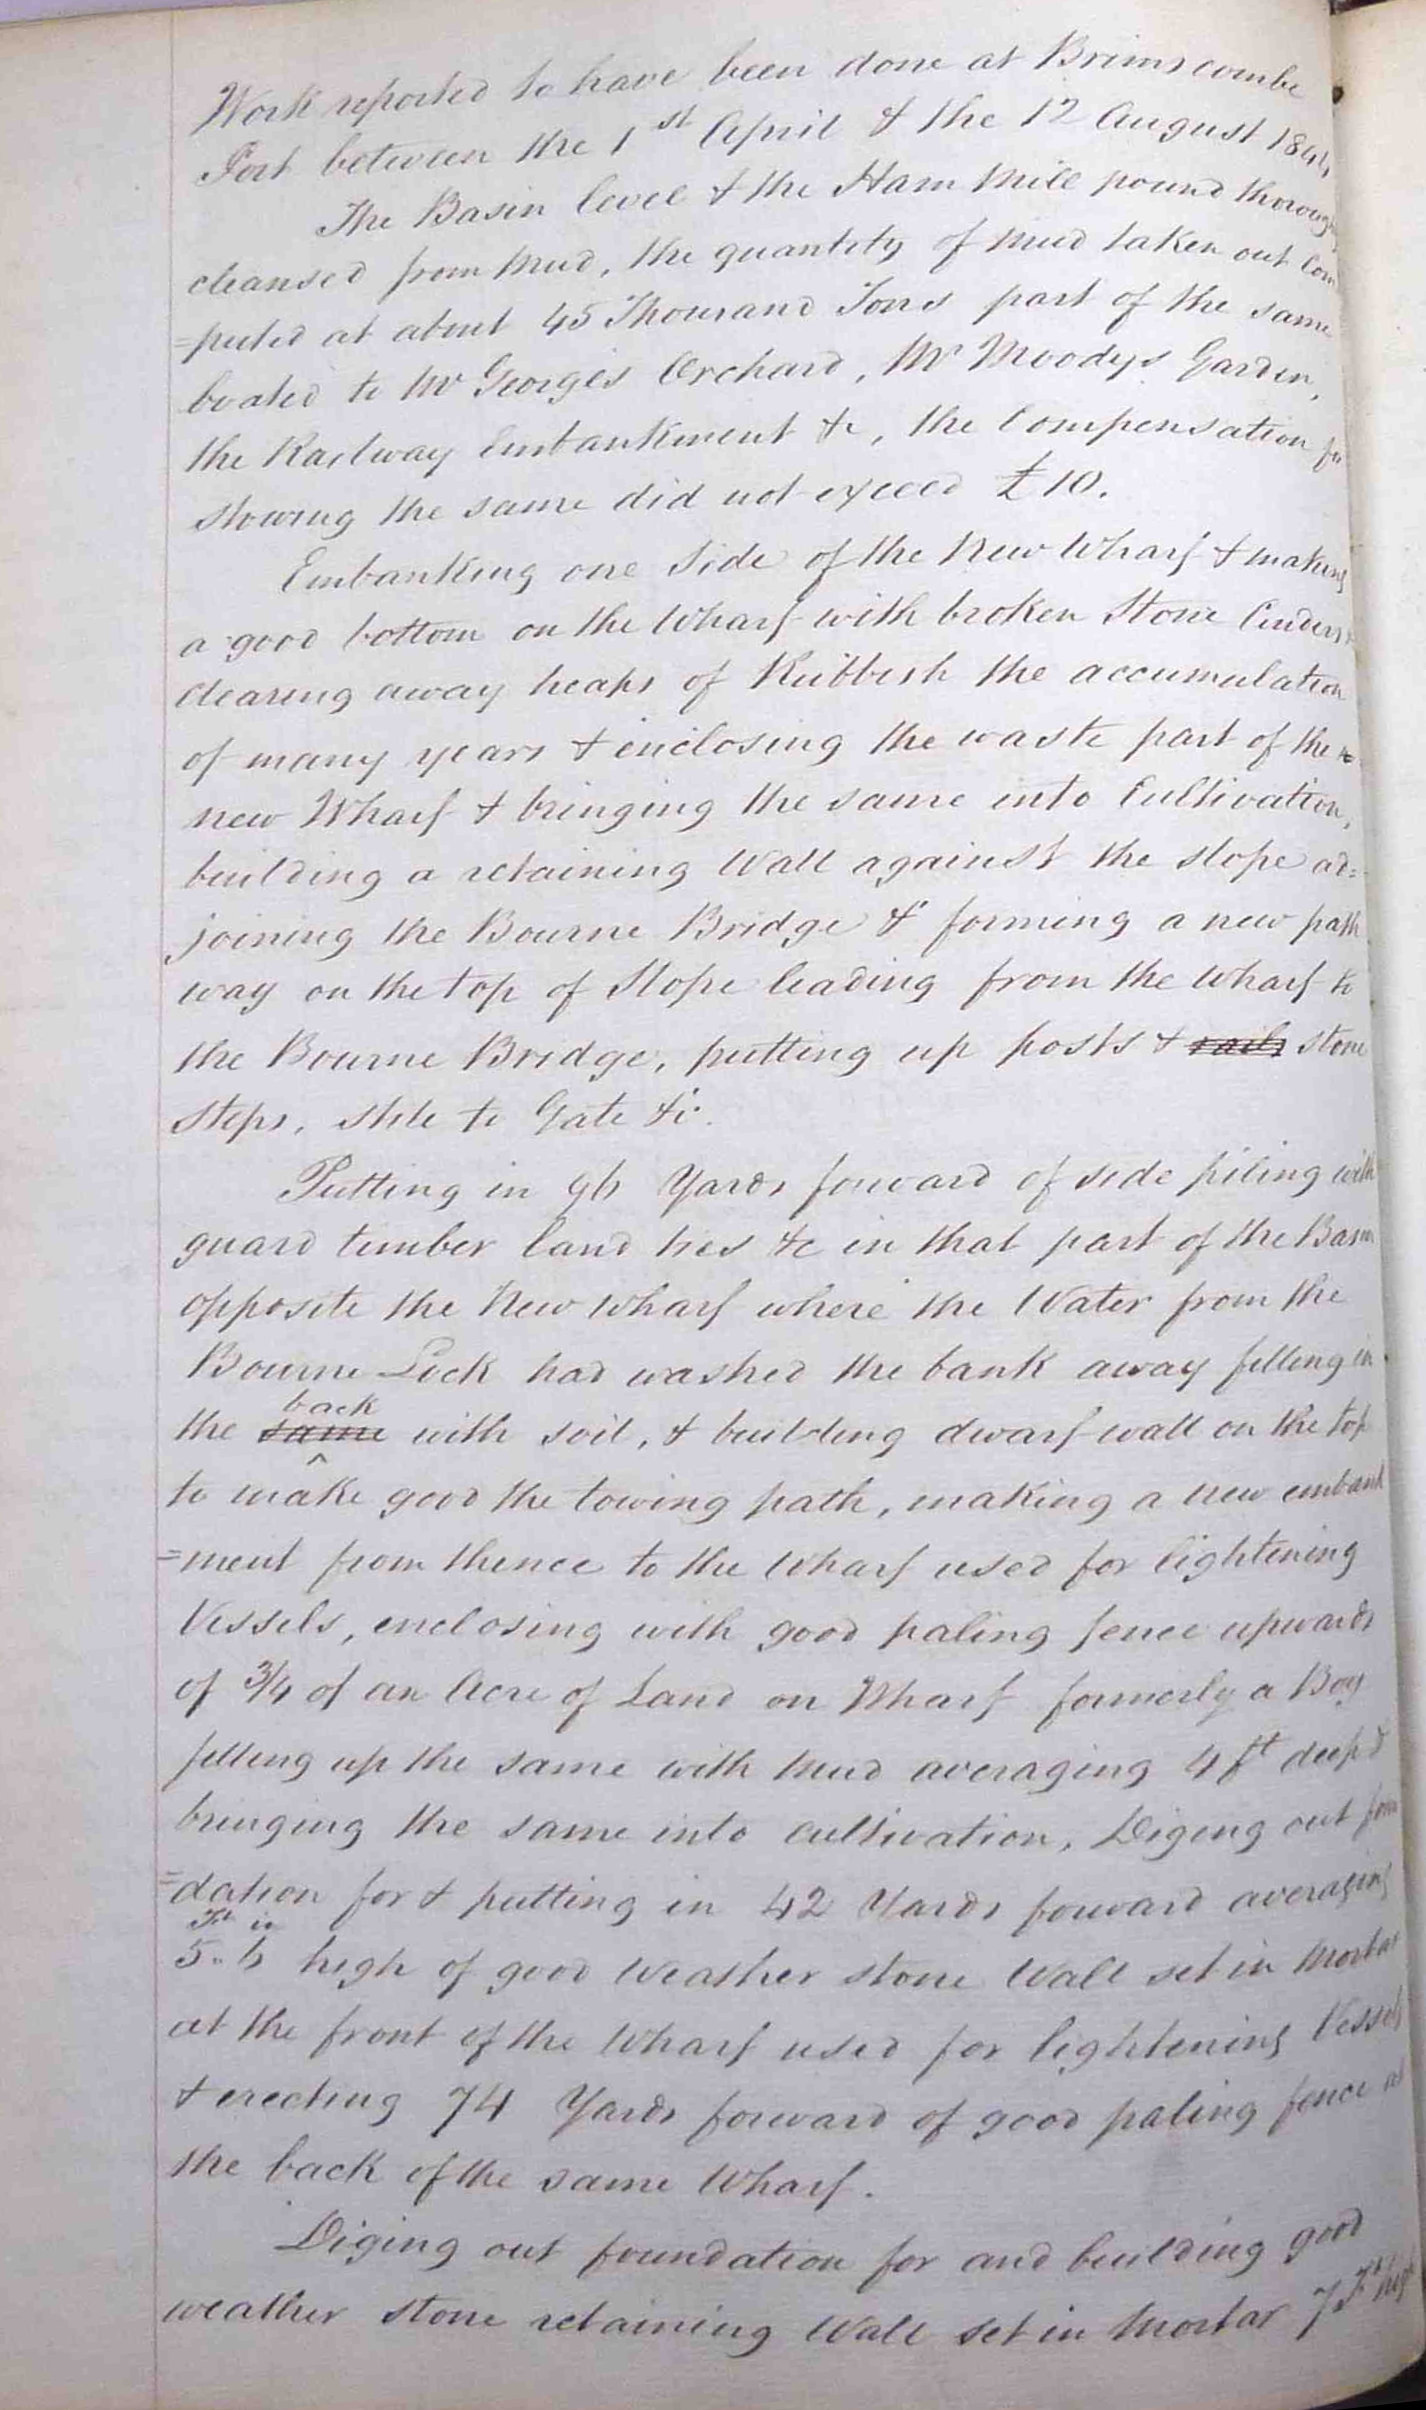 Work reported to have been done at Brimscombe
Port between the 1st April & the 12 August 184
The Basin level & the Ham Mill pound thoroughly
cleansed from Mud, the quantity of Mud taken out Com
=puted at about 45 Thousand Tons part of the same
boated to Mr Georges Orchard, Mr Moodys Garden,
the Railway Embankment &c, the Compensation for
stowing the same did not exceed £10.
Embanking one side of the New Wharf & making
a good bottom on the Wharf with broken Stone Cinders &
clearing away heaps of Rubbish the accumulation
of many years & enclosing the waste part of the
new Wharf & bringing the same into Cultivation,
building a retaining Wall against the slope ad=
joining the Bourne Bridge & forming a new path
way on the top of Slope leading from the Wharf to
the Bourne Bridge, putting up posts & rails stone
steps, stile to Gate &c.
Putting in 96 Yards forward of side piling with
guard timber land ties &c in that part of the Basin
opposite the New Wharf where the Water from the
Bourne Lock had washed the bank away filling in
back
the same with soil, & building dwarf wall on the top
to make good the towing path, making a new embank
=ment from thence to the Wharf used for lightening
Vessels, enclosing with good paling fence upwards
of 3/4 of an Acre of Land on Wharf formerly a Bog
filling up the same with Mud averaging 4 ft deep &
bringing the same into cultivation, Diging out foun
=dation for & putting in 42 Yards forward averaging
Ft in
5.. 6 high of good Weather stone Wall set in Mortar
at the front of the Wharf used for lightening Vessels
& erecting 74 Yards forward of good paling fence at
the back of the same Wharf.
Diging out foundation for and building good
weather stone retaining Wall set in Mortar 7 Ft high